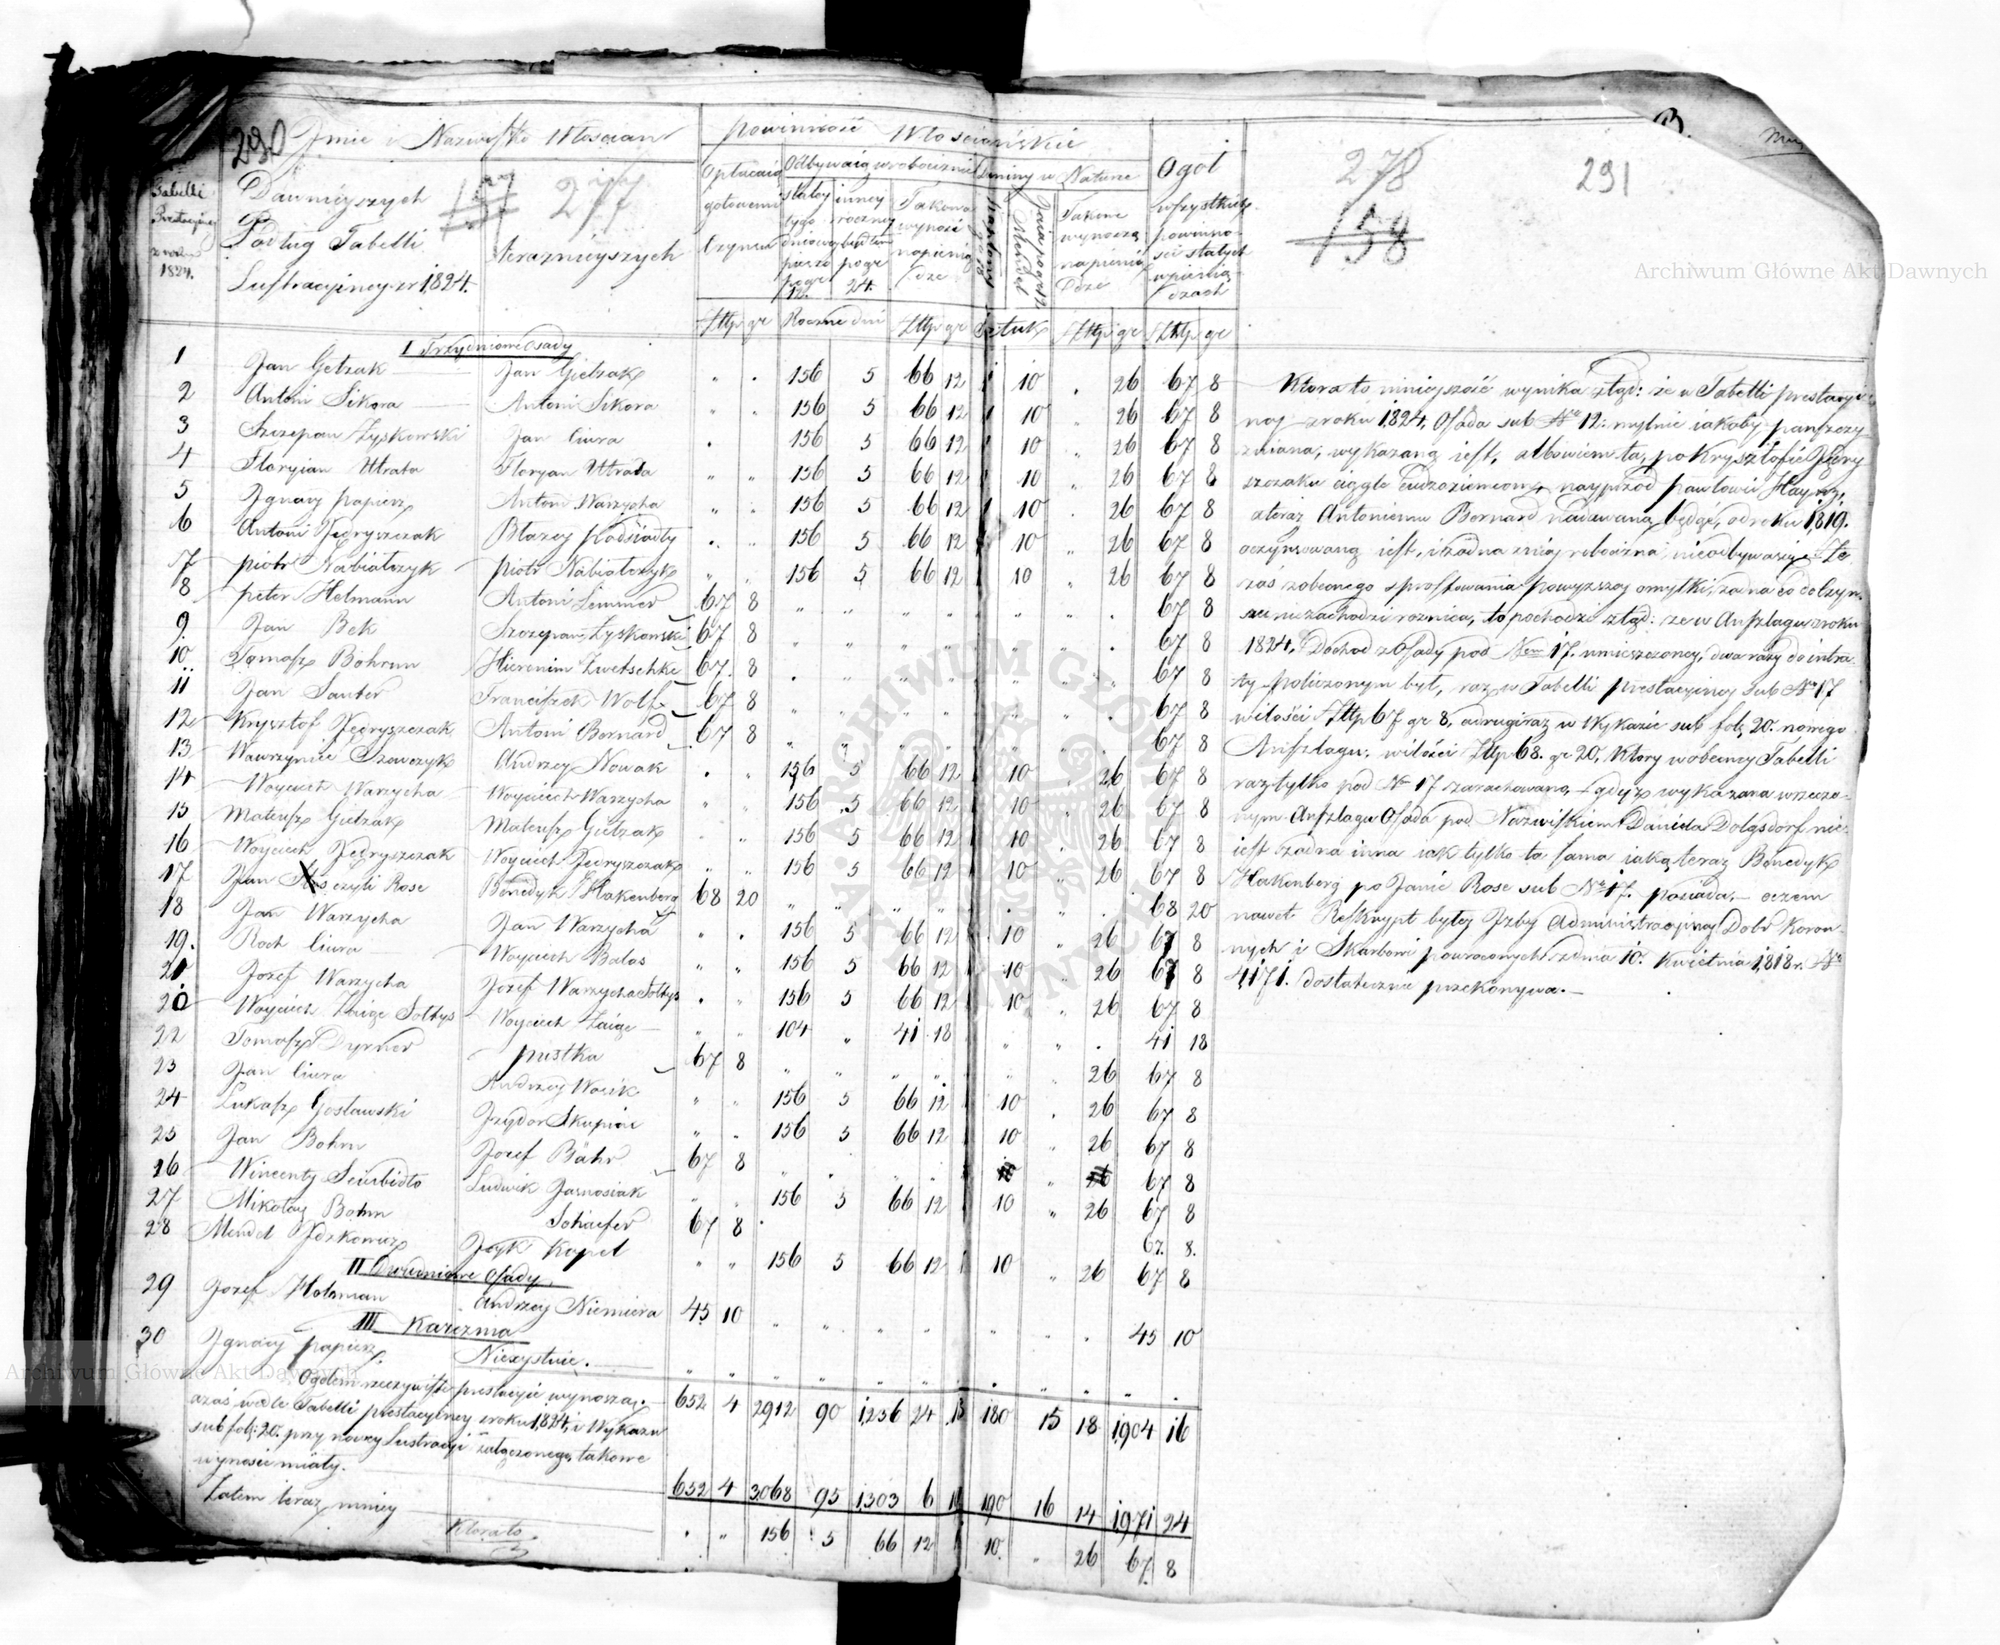 290 Jmie i Nazwisko Włościan
powinność Włościańskie
Tabelli Prestacyiney z roku 1824.
Dawnieyszych Podług Tabelli Lustracyiney zr 1824.
157 277
Teraznieyszych
Opłacaią gotowemi Czynszu
Odbywaią w robociznie
Daniny w Naturze
Ogół wszystkich powinności stałych w pieniądzach
Złtp gr Roczne dni Złtp gr Sztuk Złtp gr Złtp gr
I Trzydniowe Osady
1 Jan Getzak Jan Gielzak " " 156 5 66 12 1 10 " 26 67 8
2 Antoni Sikora Antoni Sikora " " 156 5 66 12 1 10 " 26 67 8
3 Szczepan Łyskowski Jan Ciura " 156 5 66 12 1 10 " 26 67 8
4 Floryian Utrata Floryan Utrata " " 156 5 66 12 1 10 " 26 67 8
5 Jgnacy papiesz Antoni Warzycha " " 156 5 66 12 1 10 " 26 67 8
6 Antoni Jędryszczak Błazey Podsiadły " " 156 5 66 12 10 " 26 67 8
7 piotr Nabiałczyk piotr Nabiałczyk " " 156 5 66 12 1 10 " 26 67 8
8 peter Helmann Antoni Lemmer 67 8 67 8
9 Jan Bek Szczepan Łyskowski 67 8 67 8
10 Tomasz Bohrun Hieronim Zwetschke 67 8 67 8
11 Jan Sauter Franciszek Wolf 67 8 67 8
12 Krysztof Jędryszczak Antoni Bernard 67 8 67 8
13 Wawrzyniec Szewczyk Andrzey Nowak " " 156 5 66 12 1 10 " 26 67 8
14 Woyciech Warzycha Woyciech Warzycha " " 156 5 66 12 1 10 " 26 67 8
15 Mateusz Gielzak Mateusz Gielzak " " 156 5 66 12 1 10 " 26 67 8
16 Woyciech Jędryszczak Woyciech Jędryszczak " " 156 5 66 12 1 10 " 26 67 8
17 Jan czyli Rose Benedyk Hakenberg 68 20 68 20
18 Jan Warzycha Jan Warzycha " " 156 5 66 12 10 " 26 67 8
19. Roch Ciura Woyciech Balas " " 156 5 66 12 1 10 " 26 67 8
21 Jozef Warzycha Jozef Warzycha Sołtys " " 156 5 66 12 10 " 26 67 8
20 Woyciech Zaige Sołtys Woyciech Zaige " " 104 " 41 18 41 18
22 Tomasz Dyrner pustka 67 8 26 67 8
23 Jan Ciura Andrzey Wosik " " 156 5 66 12 1 10 " 26 67 8
24 Łukasz Gosławski Jzydor Skupień " " 156 5 66 12 1 10 " 26 67 8
25 Jan Bohm Jozef Bähr 67 8 67 8
26 Wincenty Ludwik Jarnosiak " " 156 5 66 12 10 " 26 67 8
27 Mikołay Bohm Schaefer 67 8 67. 8.
28 Mendel Jckowicz Josyk Kopel " " 156 5 66 12 1 10 " 26 67 8
II Dwudniowe Osady
29 Jozef Holzman Andrzey Niemiera 45 10 45 10
III Karczma
30 Jgnacy papiesz Niexystuie.
Ogółem rzeczywiste prestacyie wynoszą. 652 4 2912 90 1,236 24 18 180 15 18 1,904 16
azaś wedle Tabelli prestacyiney zroku 1,824, i Wykazu
sub fol: 20. przy nowey Lustracyi załączonego, takowe
wynosić miały. 652 4 3,068 95 1,303 6 19 190 16 14 1,971 24
Zatem teraz mniey " " 156 5 66 12 1 10 " 26 67 8
Ktora to
278
158
291
B.
Ktora to mnieyszość wynika ztąd: że w Tabelli prestacyi
ney zroku 1,824, Osada sub No 12. mylnie iakoby panszczy
zniana, wykazaną iest, albowiem ta, po Krysztofie Jędry
szczaku ciągle Cudzoziemcom, nayprzod Pawłowi Hayny,
a teraz Antoniemu Bernard nadawaną będąc, od roku 1,819.
oczynszowaną iest, i żadna z niey robocizna nieodbywa się. Ze
zaś z obecnego sprostowania powyzszey omyłki, żadna co do Czyn
szu niezachodzi roznica, to pochodzi ztąd: ze w Anszlagu z roku
1824. Dochod z Osady pod Nem 17. umieszczoney, dwa razy do intra
ty policzonym był, raz w Tabelli prestacyiney sub No 17
wilości Złtp 67 gr 8, a drugi raz w Wykazie sub fol, 20. nowego
Anszlagu. wilości Złtp 68. gr 20, Ktory w obecney Tabelli
raz tylko pod No 17 zarachowano gdyż wykazana wrzeczo-
nym Anszlagu Osada pod Nazwiskiem Daniela Dolgsdorf nie
iest zadna inna iak tylko ta sama iaką teraz Benedyk
Hakenberg po Janie Rose sub No 17. posiada,— oczem
nawet Reskrypt byłey Jzby Administracyiney Dobr Koron
nych i Skarbowi powroconych zdnia 10. Kwietnia 1,818 r. No
4,171. dostatecznie przekonywa.—
Archiwum Główne Akt Dawnych
Archiwum Główne Akt Dawnych